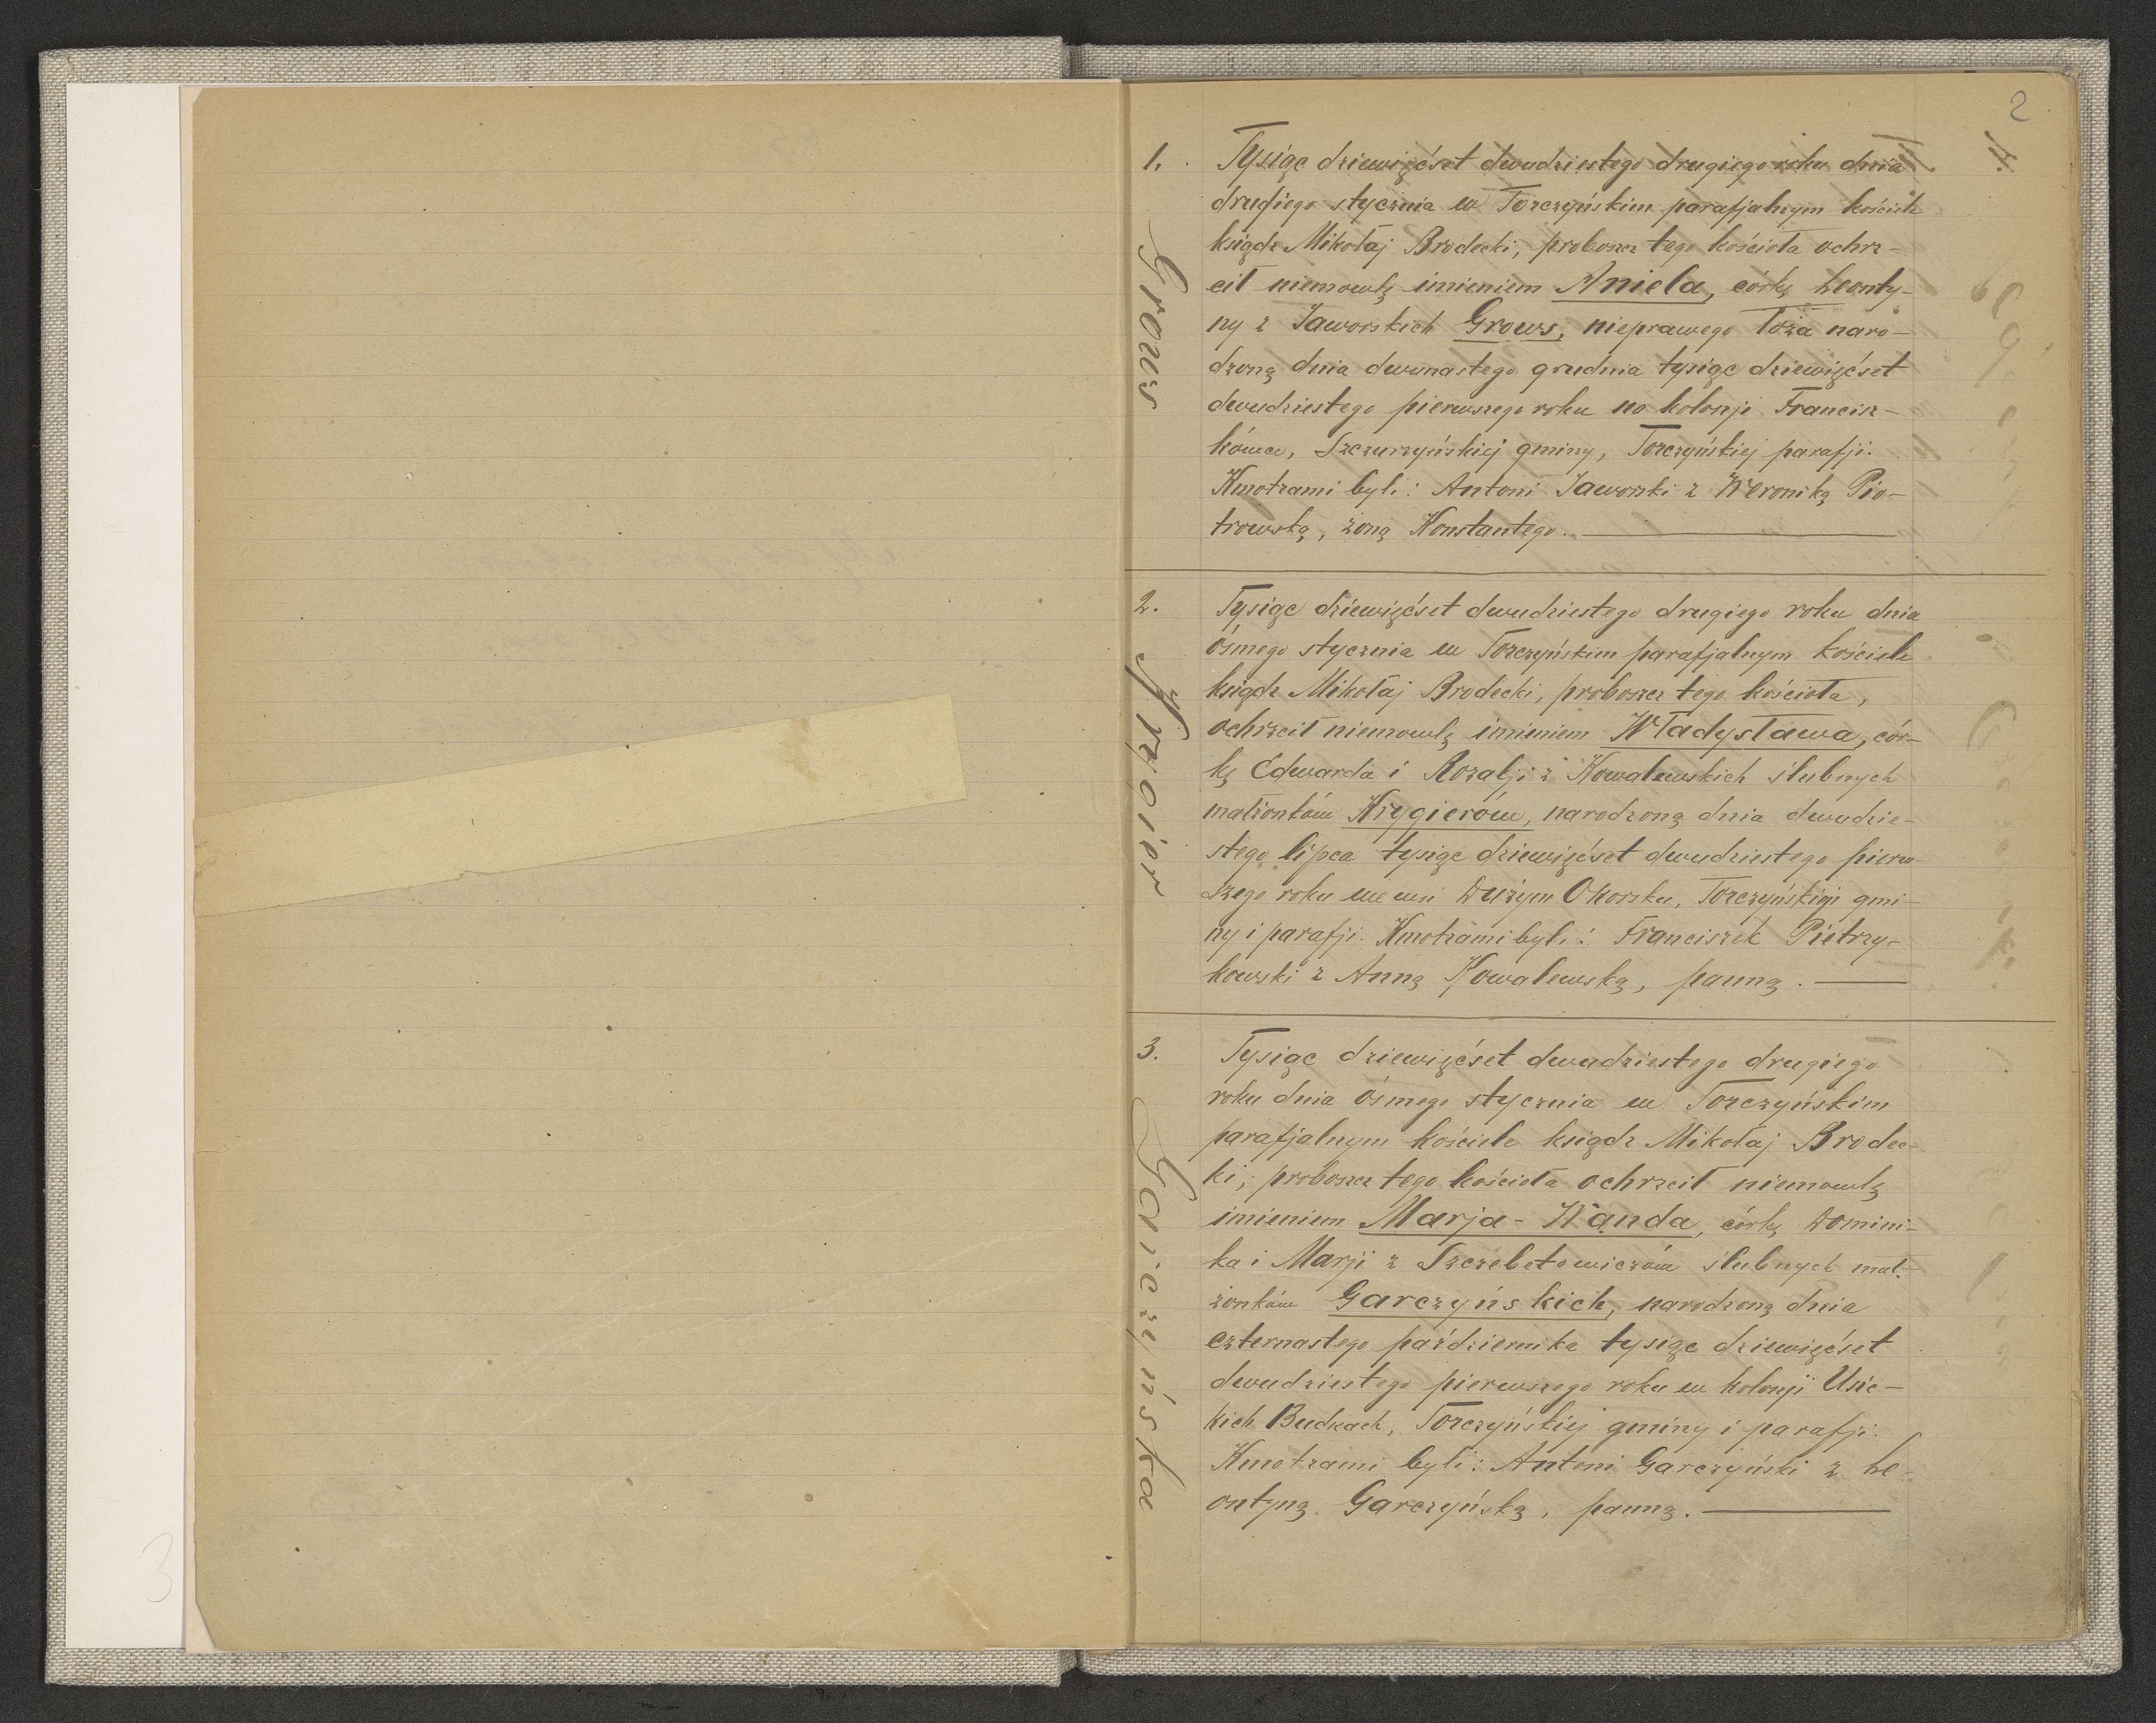 2
1.
Grows
Tysiąc dziewięćset dwudziestego drugiego roku dnia
drugiego stycznia w Torczyńskim parafjalnym kościele
ksiądz Mikołaj Brodecki, proboszcz tego kościoła ochrz-
cił niemowlę imieniem Aniela, córkę Leonty-
ny z Jaworskich Grows, nieprawego łoża naro-
dzoną dnia dwunastego grudnia tysiąc dziewięćset
dwudziestego pierwszego roku na kolonji Francisz-
kówce, Szczurzyńskiej gminy, Torczyńskiej parafji.
Kmotrami byli: Antoni Jaworski z Weroniką Pio-
trowską, żoną Konstantego.
2.
Krygier
Tysiąc dziewięćset dwudziestego drugiego roku dnia
ósmego stycznia w Torczyńskim parafjalnym kościele
ksiądz Mikołaj Brodecki, proboszcz tego kościoła,
ochrzcił niemowlę imieniem Władysława, cór-
kę Edwarda i Rozalji z Kowalewskich ślubnych
małżonków Krygierów, narodzoną dnia dwudzie-
stego lipca tysiąc dziewięćset dwudziestego pierw-
szego roku we wsi Dużym Okorsku, Torczyńskiej gmi-
ny i parafji. Kmotrami byli: Franciszek Pietrzy-
kowski z Anną Kowalewską, panną.
3.
Garczyńska
Tysiąc dziewięćset dwudziestego drugiego
roku dnia ósmego stycznia w Torczyńskim
parafjalnym kościele ksiądz Mikołaj Brodec-
ki, proboszcz tego kościoła ochrzcił niemowlę
imieniem Marja-Wanda, córkę Domini-
ka i Marji z Szczebetowiczów ślubnych mał-
żonków Garczyńskich, narodzoną dnia
czternastego października tysiąc dziewięćset
dwudziestego pierwszego roku w kolonji Usic-
kich Budkach, Torczyńskiej gminy i parafji.
Kmotrami byli: Antoni Garczyński z Le-
ontyną Garczyńską, panną.
3